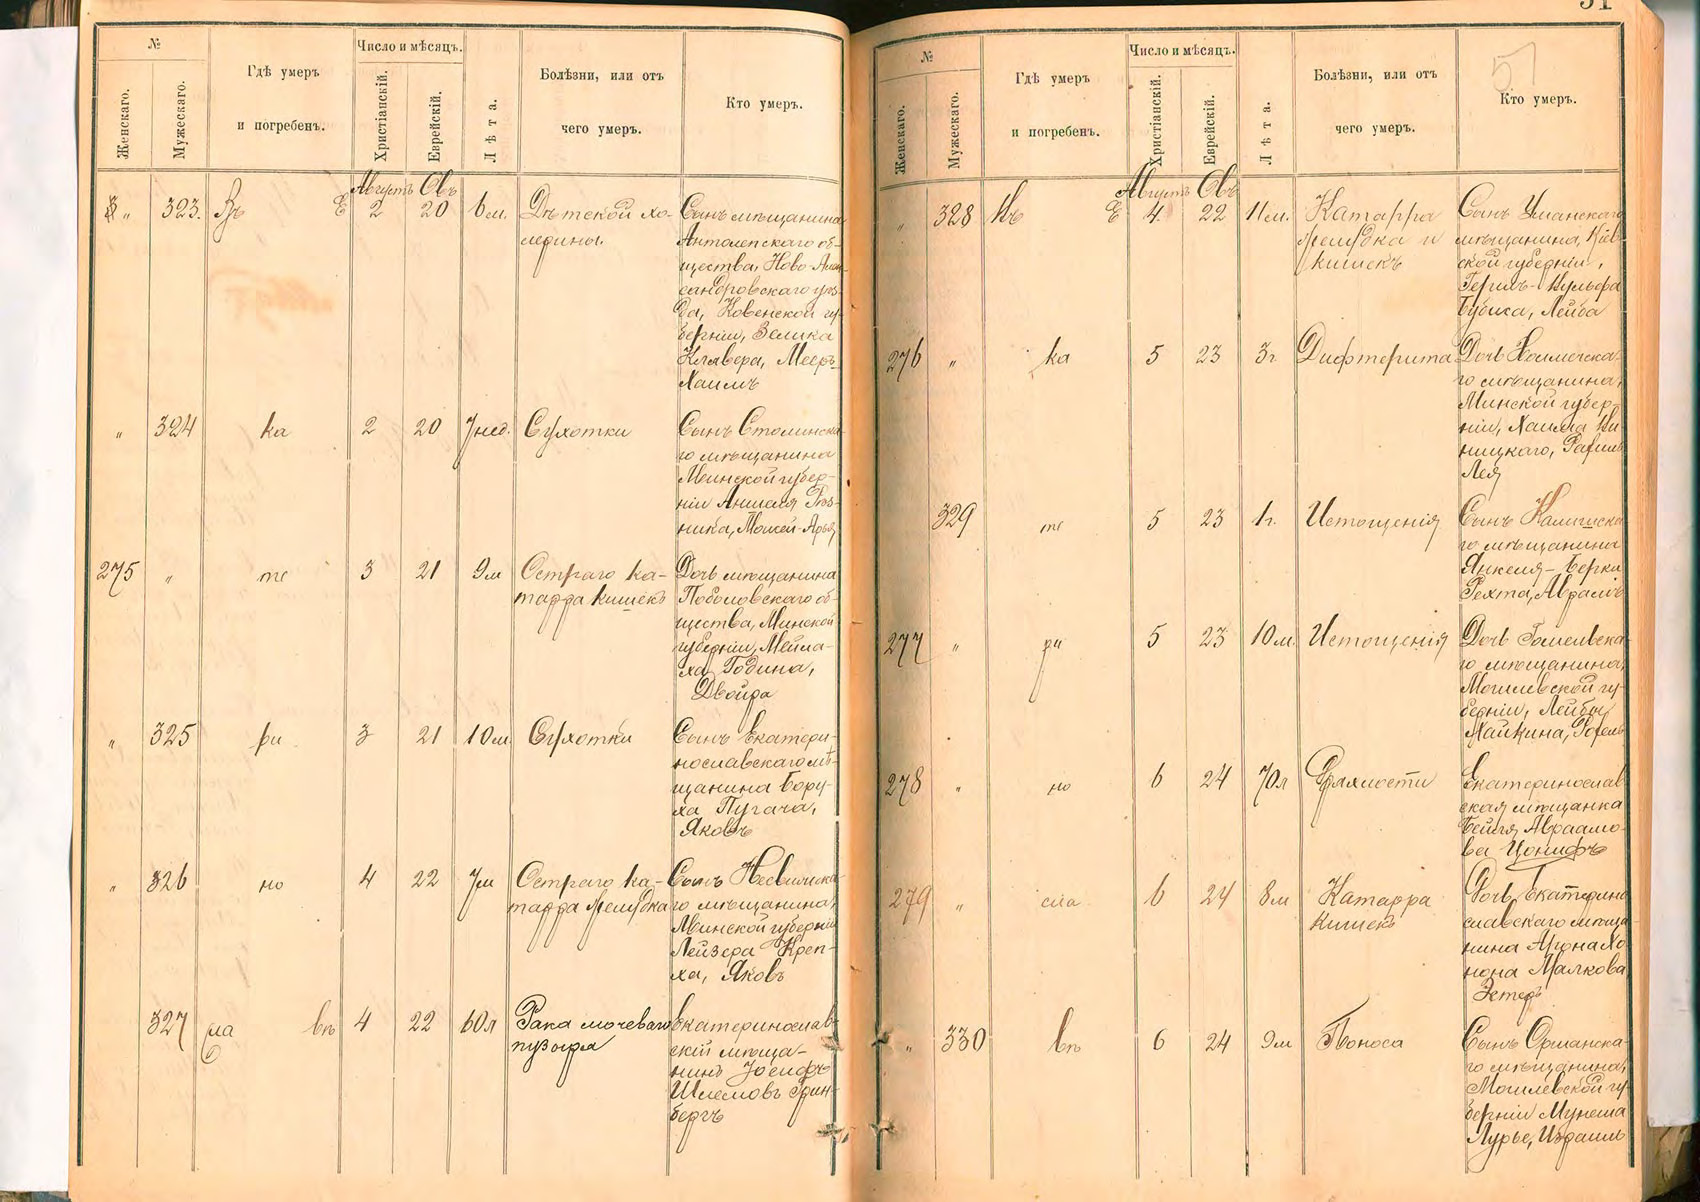 №
Число и мѣсяцъ.
Женскаго.
Мужескаго.
Гдѣ умеръ
и погребенъ.
Христіанскій.
Еврейскій.
Лѣта.
Болѣзни, или отъ
чего умеръ.
Кто умеръ.
Августъ Овъ
„ 323. Въ Е 2 20 6 м. Дѣтской хо-
лерины.
Сынъ мѣщанина
Антолепскаго об-
щества, Ново-Алек-
сандровскаго уѣз-
да, Ковенской гу-
берніи, Зелика
Клявера, Мееръ-
Хаимъ
„ 324 ка 2 20 7 нед. Сухотки
Сынъ Столинска-
го мѣщанина
Минской губер-
ніи Аншеля Рѣз-
ника, Мовшей-Арья
275 „ те 3 21 9 м Остраго ка-
тарра кишекъ
Дочь мѣщанина
Поболовскаго об-
щества, Минской
губерніи, Мейла-
ха Година,
Двойра
„ 325 ри 3 21 10 м. Сухотки
Сынъ Екатери-
нославскаго мѣ-
щанина Бору-
ха Пугача,
Яковъ
„ 326 но 4 22 7 м Остраго ка-
тарра желудка
Сынъ Несвижска-
го мѣщанина,
Минской губерніи
Лейзера Креп-
ха, Яковъ
327 сла вѣ 4 22 60 л Рака мочеваго
пузыря
Екатеринослав-
скій мѣща-
нинъ Іосифъ
Шлемовъ Грин-
бергъ
51
57
№
Число и мѣсяцъ.
Женскаго.
Мужескаго.
Гдѣ умеръ
и погребенъ.
Христіанскій.
Еврейскій.
Лѣта.
Болѣзни, или отъ
чего умеръ.
Кто умеръ.
Августъ Овъ
„ 328 Въ Е 4 22 11 м. Катарра
желудка и
кишекъ
Сынъ Уманскаго
мѣщанина, Кіев
ской губерніи,
Гершъ-Вульфа
Бубиса, Лейба
276 „ ка 5 23 3 г Дифтерита
Дочь Холмечска-
го мѣщанина,
Минской губер-
ніи, Хаима Ви-
ницкаго, Рахиль
Лея
329 те 5 23 1 г. Истощенія
Сынъ
го мѣщанина
Янкеля-Берки
Рехта, Абрамъ
277 „ ри 5 23 10 м. Истощенія
Дочь Гомельска-
го мѣщанина,
Могилевской гу-
берніи, Лейбы
Хайкина, Софель
278 „ но 6 24 70 л Дряхлости
Екатеринослав
ская мѣщанка
Бейля Авраамо-
ва Ционифъ
279 „ сла 6 24 8 м Катарра
кишекъ
Дочь Екатерино
славскаго мѣща-
нина Арона Хо
нона Малкова
Эстеръ
„ 330 вѣ 6 24 9 м Поноса
Сынъ Оршанска-
го мѣщанина,
Могилевской гу-
берніи Мунеша
Лурье, Израиль